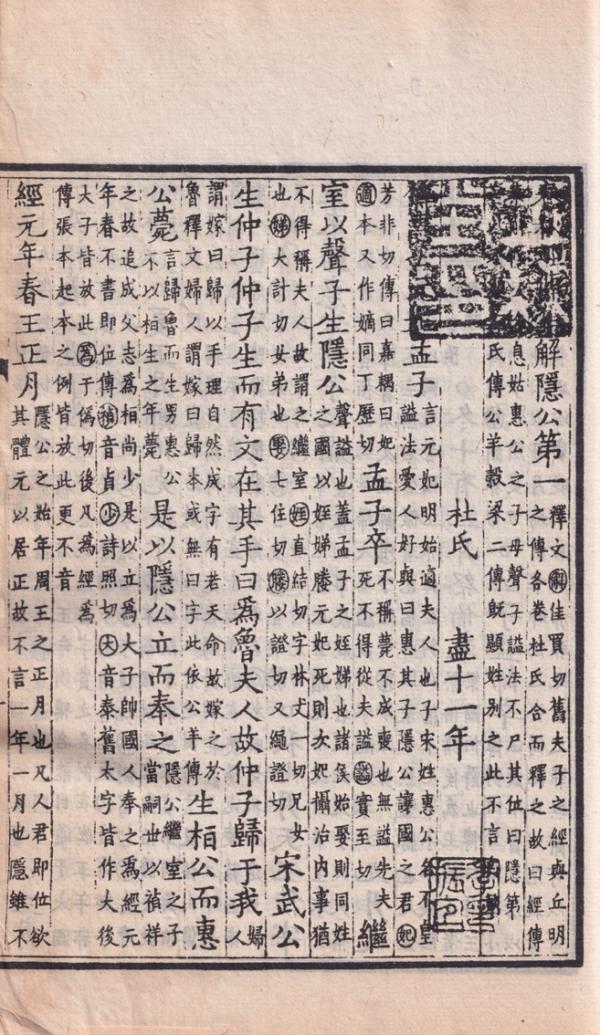 解隱公第一釋文解佳買切舊夫子之經與丘明
之傳各卷杜氏合而釋之故曰經傳
息姑惠公之子母聲子諡法不尸其位曰隱第
氏傳公羊穀梁二傳既顯姓別之此不言
杜氏 盡十一年
孟子言元妃明始適夫人也子宋姓惠公名不皇
諡法愛人好與曰惠其子隱公讓國之君妃
芳非切傳曰嘉耦曰妃
適本又作嫡同丁歷切
孟子卒不稱薨不成喪也無諡先夫
死不得從夫諡諡實至切
繼
室以聲子生隱公聲諡也蓋孟子之姪娣也諸侯始娶則同姓
之國以姪娣媵元妃死則次妃攝治內事猶
不得稱夫人故謂之繼室姪直結切字林丈一切兄女
也娣大計切女弟也娶七住切媵以證切又繩證切
宋武公
生仲子仲子生而有文在其手曰爲魯夫人故仲子歸于我婦
人
謂嫁曰歸以手理自然成字有若天命故嫁之於
魯釋文婦人謂嫁曰歸本或無曰字此依公羊傳
生桓公而惠
公薨言歸魯而生男惠公
不以桓生之年薨
是以隱公立而奉之隱公繼室之子
當嗣世以禎祥
之故追成父志爲桓尚少是以立爲大子帥國人奉之爲經元
年春不書即位傳禎音貞少詩照切大音泰舊太字皆作大後
大子皆放此爲于僞切後凡爲經爲
傳張本起本之例皆放此更不音
經元年春王正月隱公之始年周王之正月也凡人君即位欲
其體元以居正故不言一年一月也隱雖不